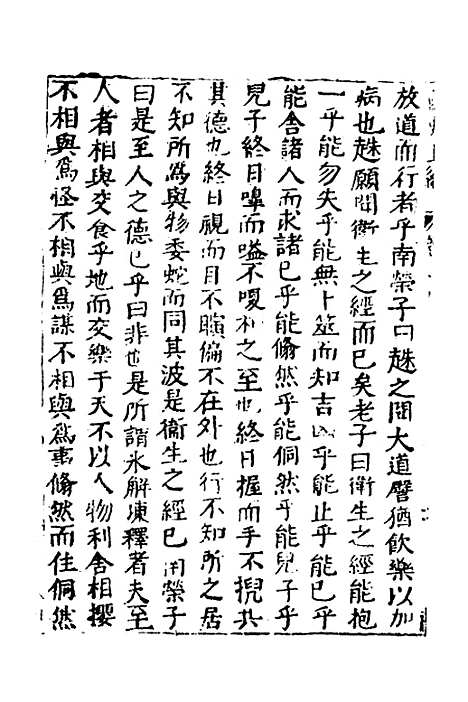 放道而行者乎南榮子曰趎之聞大道譬猶飲藥以加
病也趎願聞衛生之經而已矣老子曰衛生之經能抱
一乎能勿失乎能無卜筮而知吉凶乎能止乎能已乎
能舍諸人而求諸已乎能翛然乎能侗然乎能兒子乎
兒子終日嘷而嗌不嗄和之至也終日握而手不掜共
其德也終日視而目不瞚偏不在外也行不知所之居
不知所為與物委蛇而同其波是衞生之經已南榮子
曰是至人之德已乎曰非也是所謂氷解凍釋者夫至
人者相與交食乎地而交樂于天不以人物利害相攖
不相與爲怪不相與爲謀不相與爲事翛然而往侗然